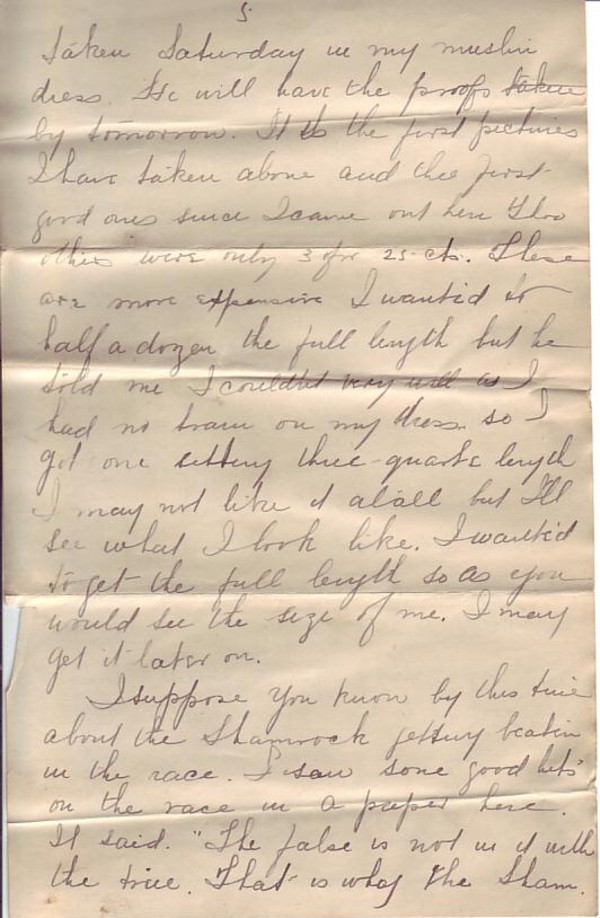 5
taken Saturday in my muslin
dress. He will have the proofs taken
by tomorrow. It is the first pictures
I have taken alone and the first
good ones since I came out here Thos
others were only 3 for 25 cts. These
are more expensive I wanted to
half a dozen the full length but he
told me I couldnt very well as I
had no train on my dress. so I
got one sitting three-quarte length
I may not like it atall but Ill
see what I look like. I wanted
to get the full length so as you
would see the size of me. I may
get it later on.
I suppose you know by this time
about the Shamrock getting beatin
in the race. I saw some good hits
on the race in a paper here.
It said. "The false is not in it with
the true. That is what the Sham.